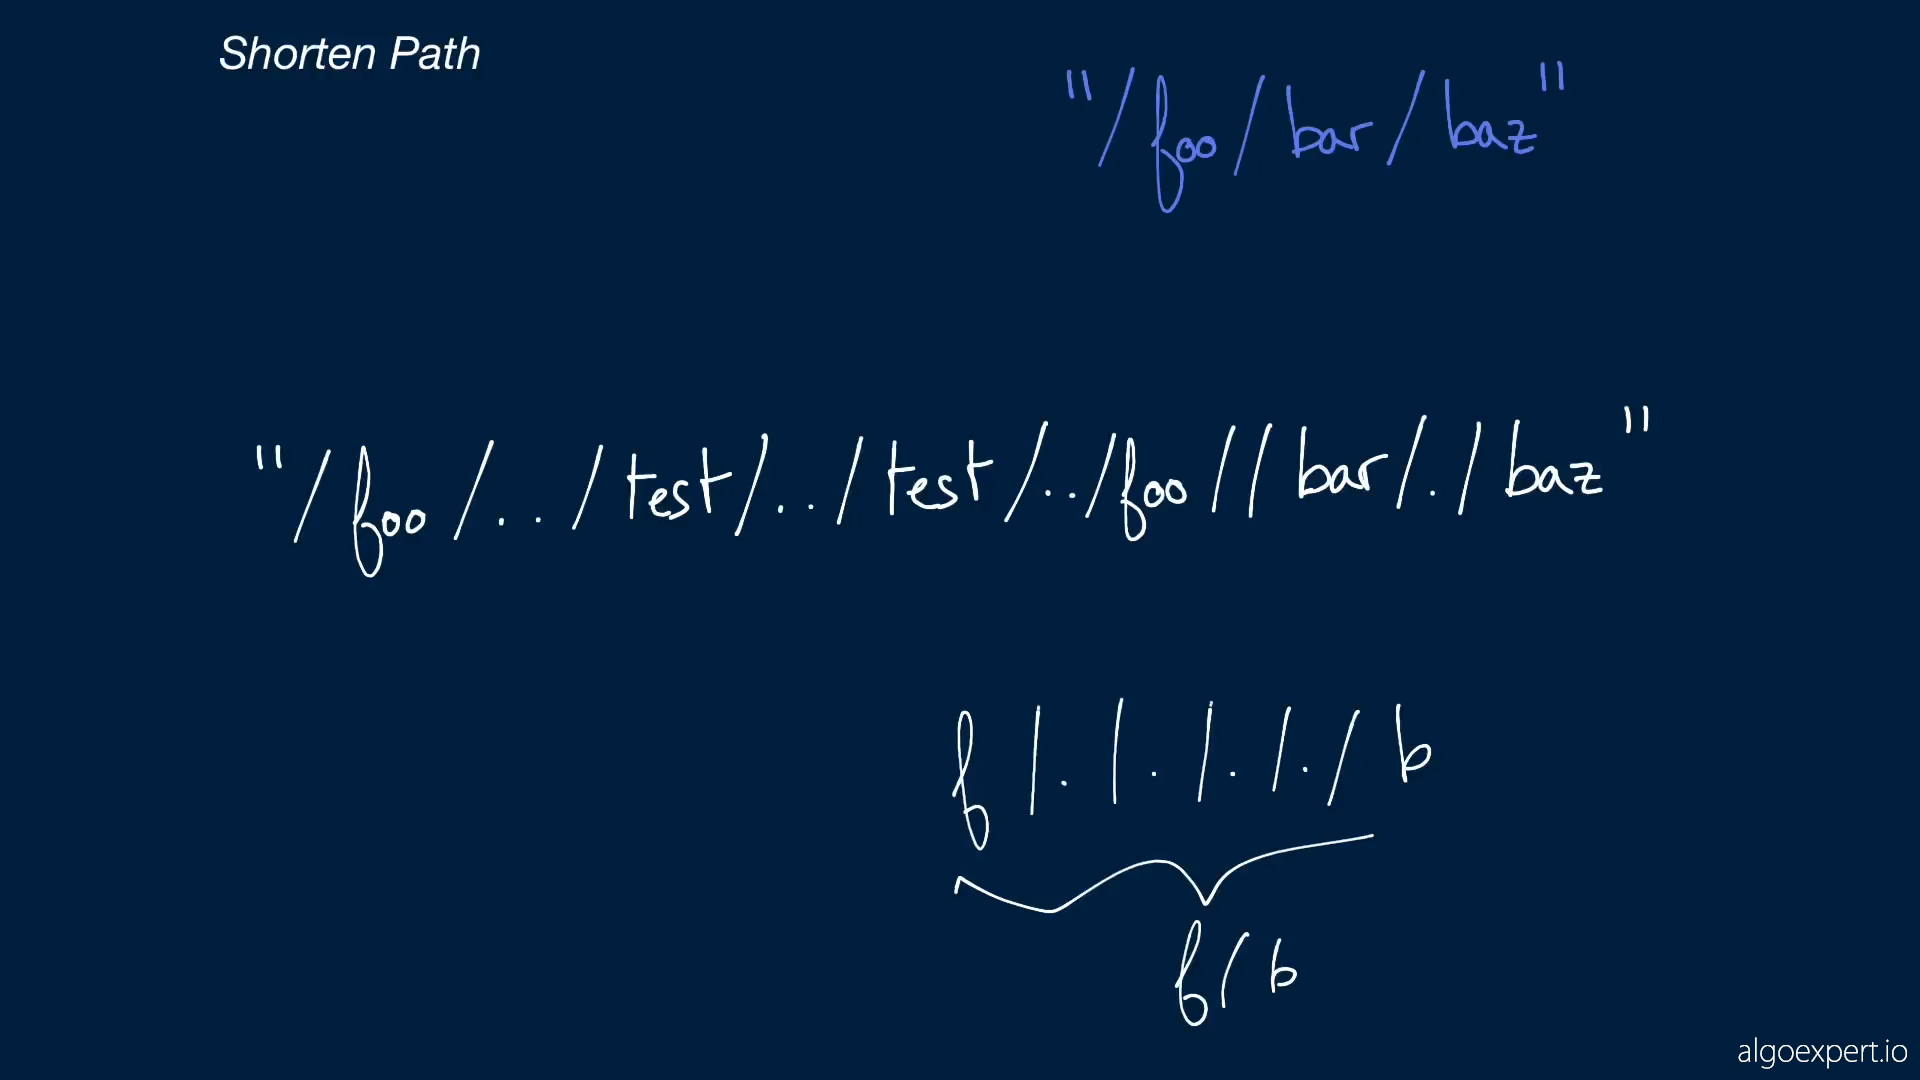 Shorten Path
"/foo/bar/baz"
"/foo/../test/../test/../foo//bar/./baz"
f/./././././b
f/b
algoexpert.io